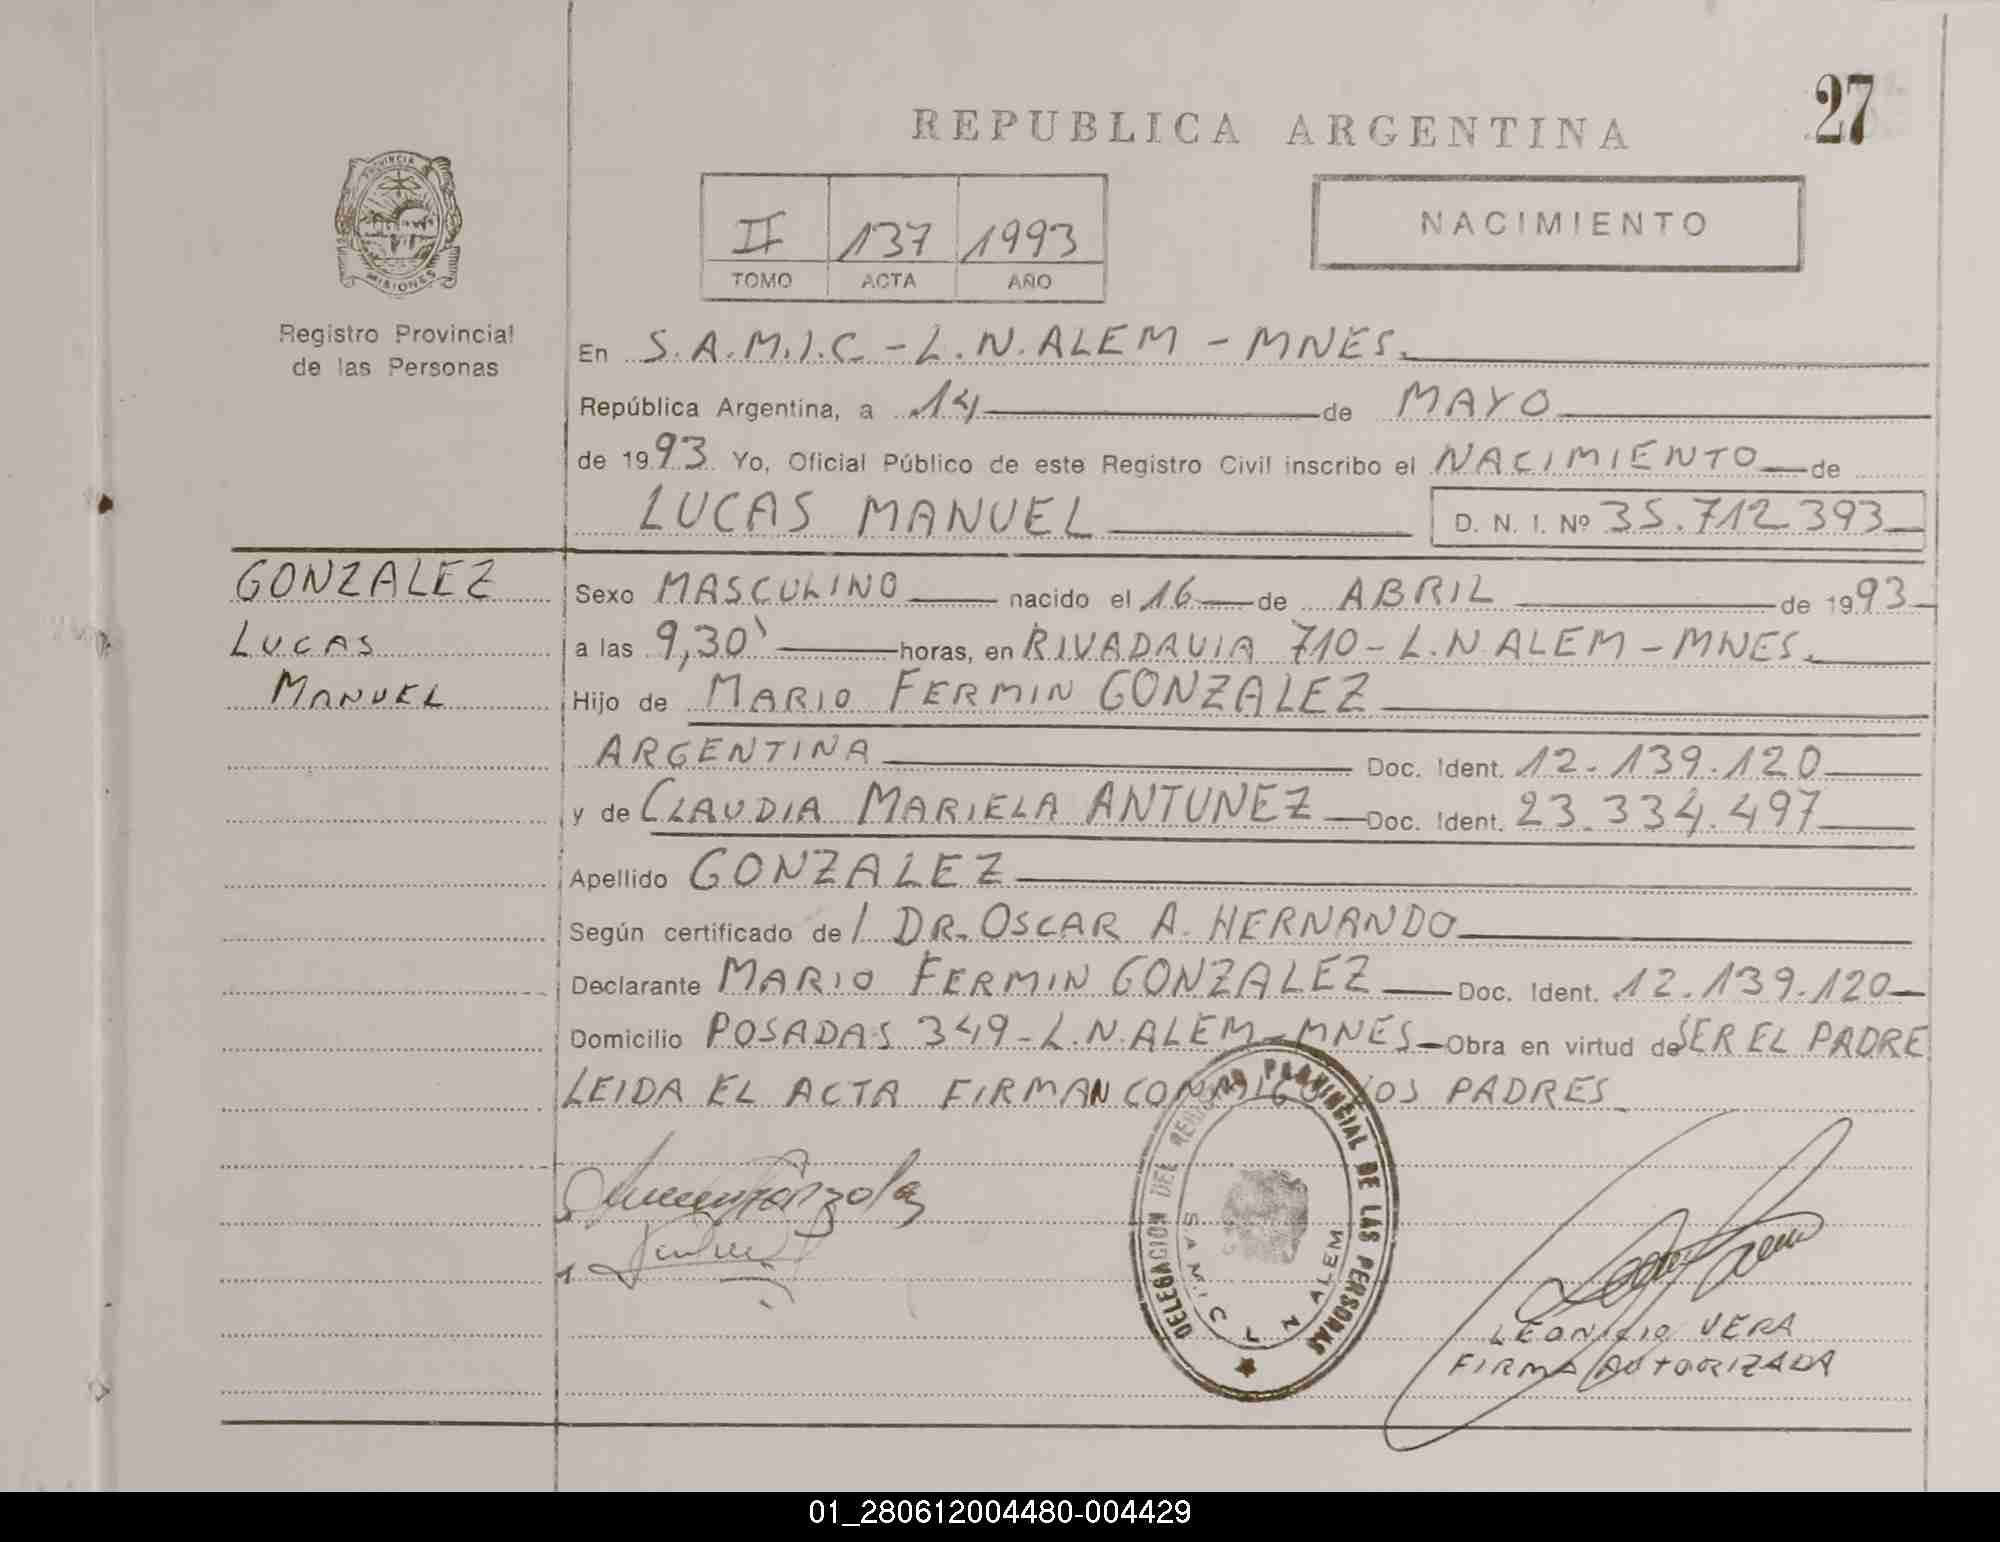 27
REPUBLICA ARGENTINA
PROVINCIA
MISIONES
Registro Provincial
de las Personas
II 137 1993
TOMO ACTA AÑO
NACIMIENTO
En S.A.M.I.C - L.N.ALEM - MNES.
República Argentina, a 14 de MAYO
de 1993 Yo, Oficial Público de este Registro Civil inscribo el NACIMIENTO de
LUCAS MANUEL D. N. I. Nº 35.712.393
GONZALEZ
LUCAS
MANUEL
Sexo MASCULINO nacido el 16 de ABRIL de 1993
a las 9,30' horas, en RIVADAVIA 710 - L.N ALEM - MNES.
Hijo de MARIO FERMIN GONZALEZ
ARGENTINA Doc. Ident. 12.139.120
y de CLAUDIA MARIELA ANTUNEZ Doc. Ident. 23.334.497
Apellido GONZALEZ
Según certificado de / DR. OSCAR A. HERNANDO
Declarante MARIO FERMIN GONZALEZ Doc. Ident. 12.139.120
Domicilio POSADAS 349 - L.N.ALEM - MNES Obra en virtud de SER EL PADRE
LEIDA EL ACTA FIRMAN CONMIGO LOS PADRES
DELEGACION DEL REGISTRO PROVINCIAL DE LAS PERSONAS
SAMIC L N ALEM
LEONICIO VERA
FIRMA AUTORIZADA
01_280612004480-004429